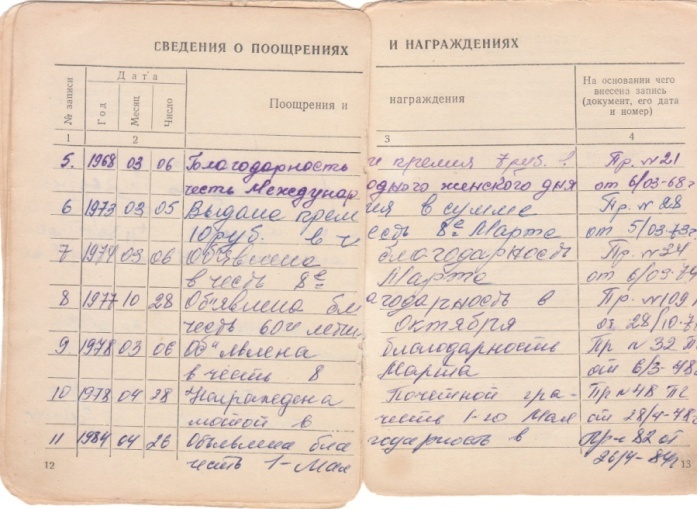 СВЕДЕНИЯ О ПООЩРЕНИЯХ И НАГРАЖДЕНИЯХ
№ записи Дата Поощрения и награждения На основании чего внесена запись (документ, его дата и номер)
Год Месяц Число
1 2 3 4
5. 1968 03 06 Благодарность и премия 7 руб. Пр. №21
честь Международного женского дня от 6/03-68г
6 1973 03 05 Выдана премия в сумме Пр. №28
10 руб. в честь 8е Марта от 5/03-73г
7 1974 03 06 Объявлена благодарность Пр. №34
в честь 8е Марта от 6/03-74
8 1977 10 28 Объявлена благодарность в Пр. №109
честь 60и летия Октября от 28/10-7
9 1978 03 06 Об"явлена благодарность Пр №32
в честь 8 Марта от 6/3-
10 1978 04 28 Награждена Почетной гра- Пр №48
мотой в честь 1-го Мая от 28/4-
11 1984 04 26 Объявлена благодарность в Пр 82 от
честь 1-Мая 26/4-84г
12 13